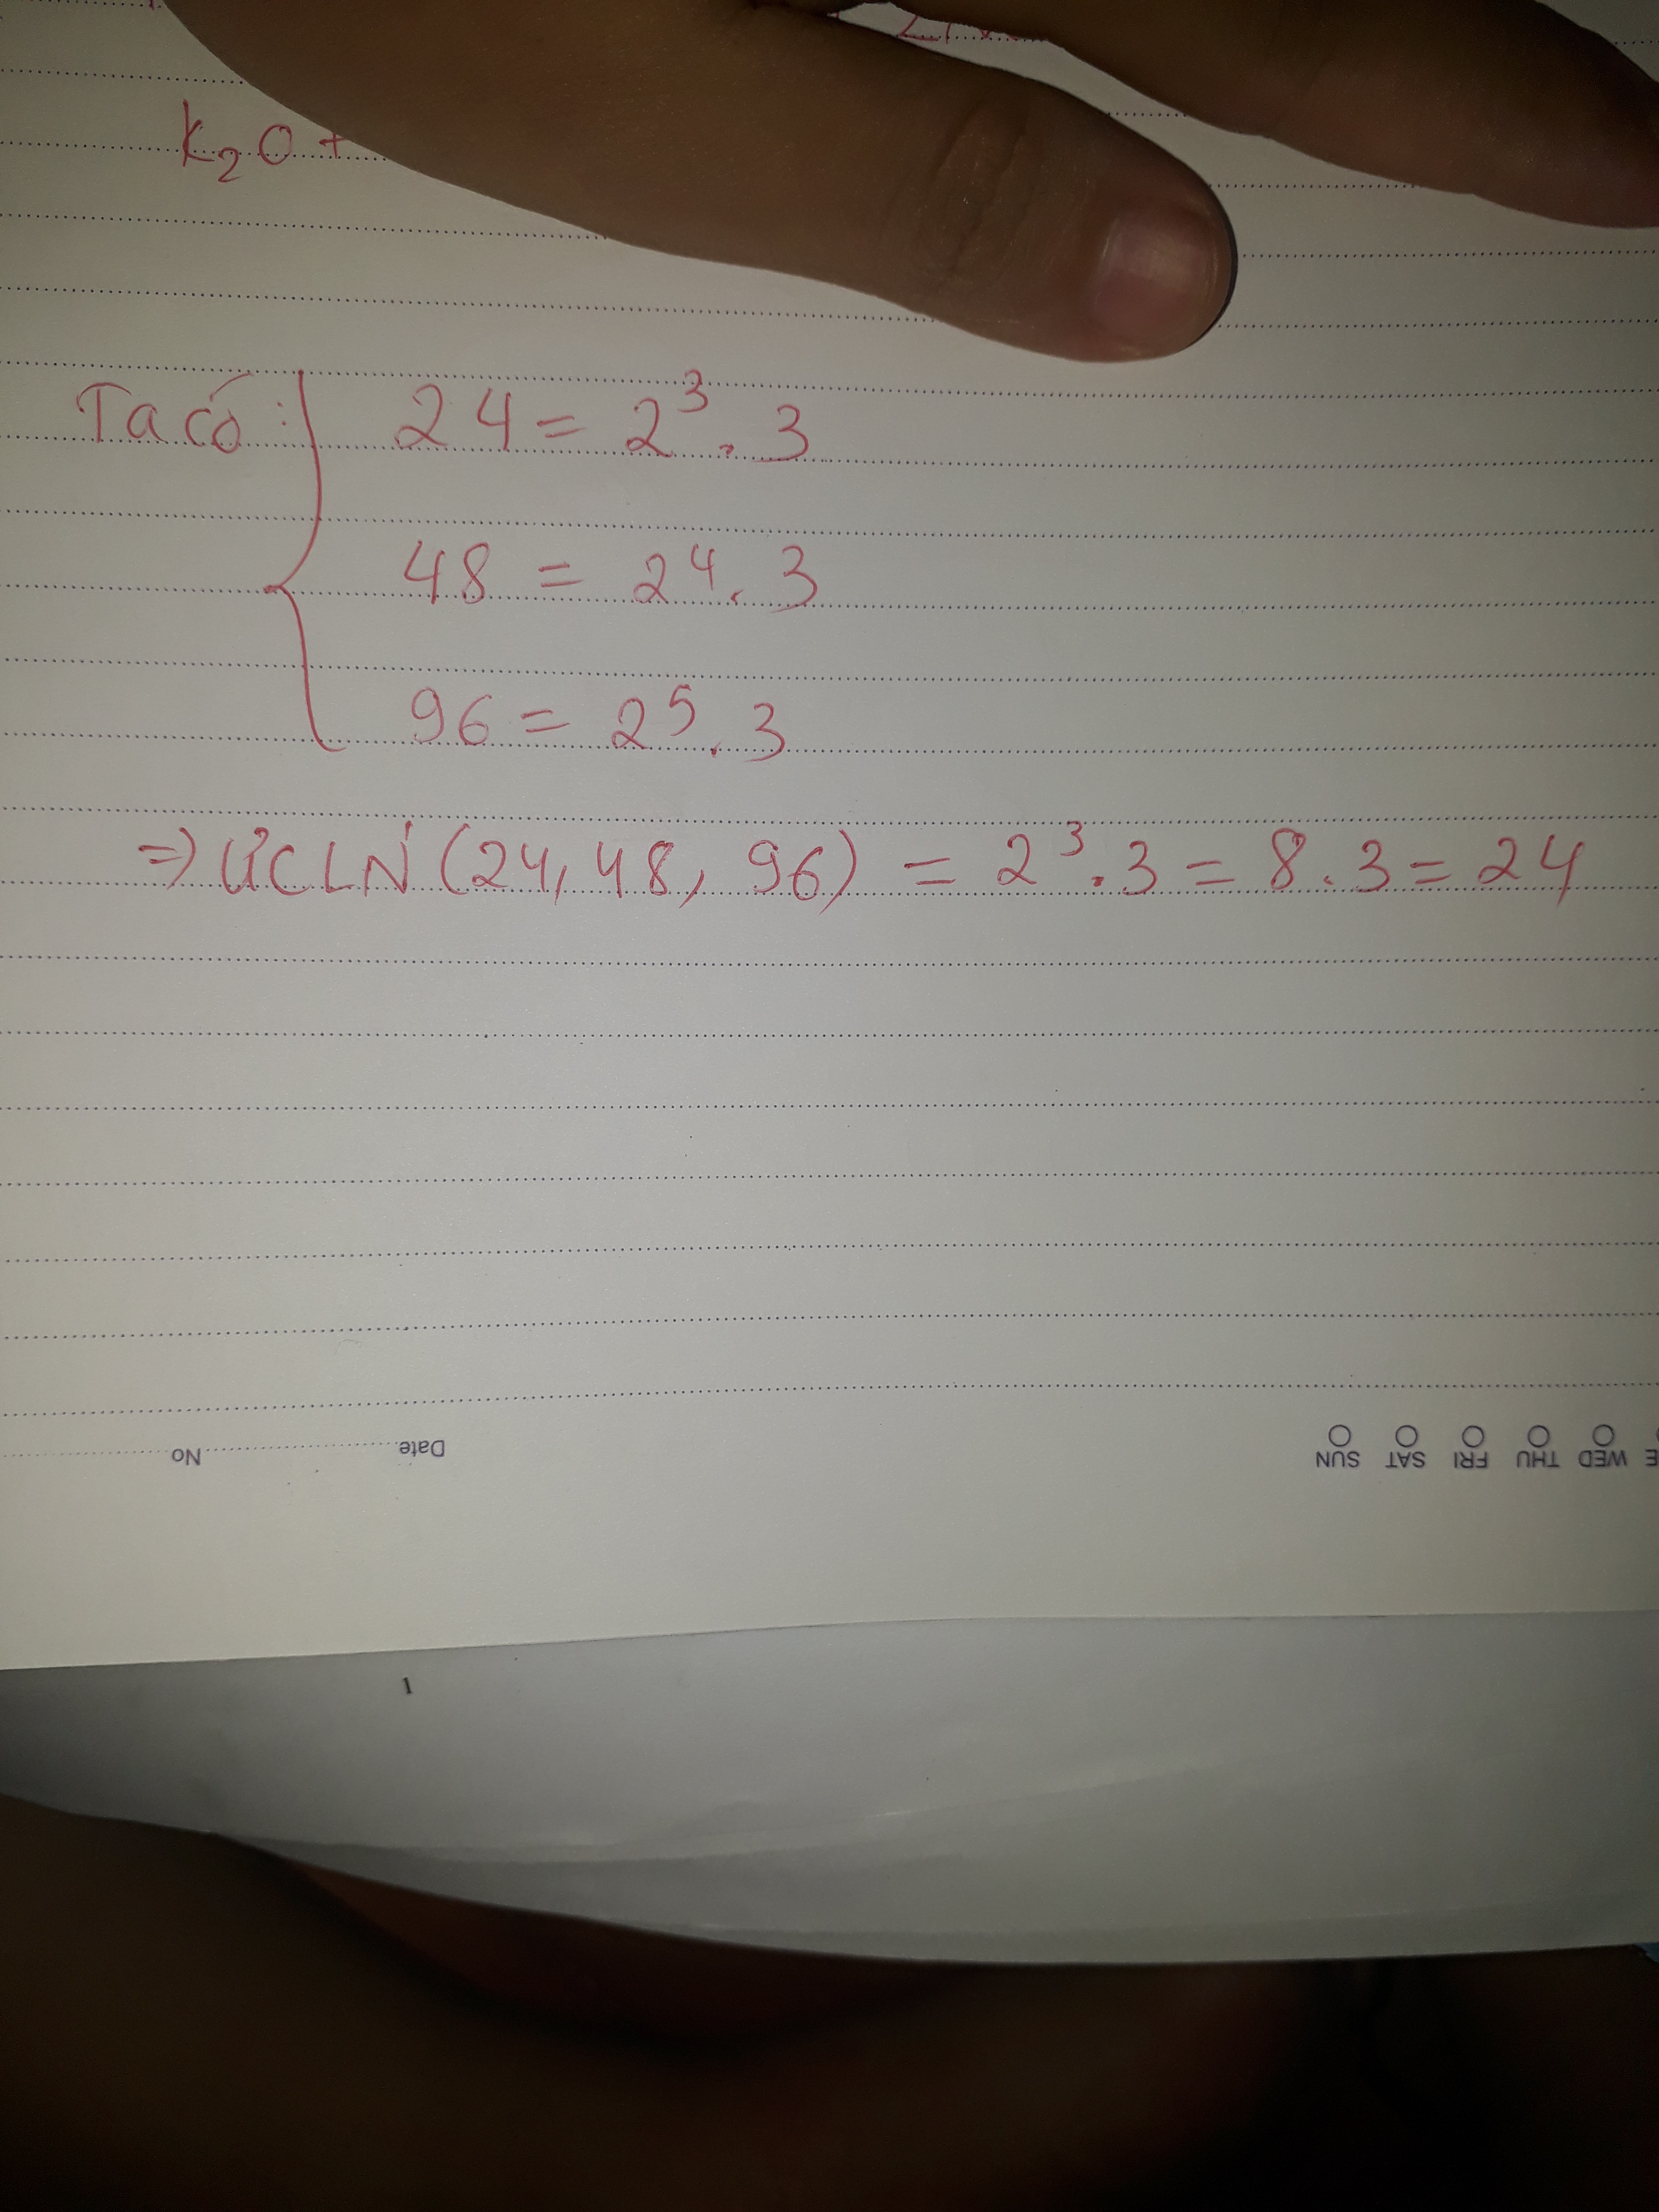 K₂O +
Ta có: 24 = 2³ . 3
48 = 2⁴ . 3
96 = 2⁵ . 3
=> ƯCLN (24, 48, 96) = 2³ . 3 = 8 . 3 = 24
Date No
E WED THU FRI SAT SUN
1